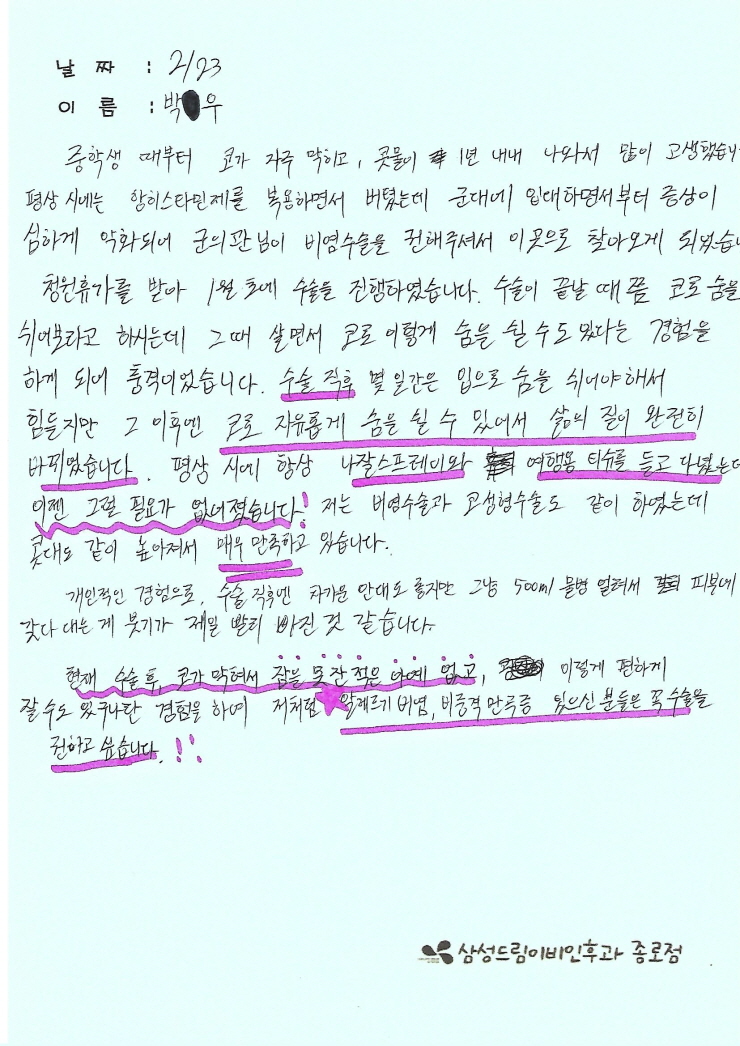 날 짜 : 2/23
이 름 : 박 우
중학생 때부터 코가 자주 막히고, 콧물이 1년 내내 나와서 많이 고생했습니
평상 시에는 항히스타민제를 복용하면서 버텼는데 군대에 입대하면서부터 증상이
심하게 악화되어 군의관님이 비염수술을 권해주셔서 이곳으로 찾아오게 되었습니
청원휴가를 받아 1월 초에 수술을 진행하였습니다. 수술이 끝날 때 쯤 코로 숨을
쉬어보라고 하시는데 그 때 살면서 코로 이렇게 숨을 쉴 수도 있다는 경험을
하게 되어 충격이었습니다. 수술 직후 몇 일간은 입으로 숨을 쉬어야 해서
힘들지만 그 이후엔 코로 자유롭게 숨을 쉴 수 있어서 삶의 질이 완전히
바뀌었습니다. 평상 시에 항상 나잘스프레이와 여행용 티슈를 들고 다녔는데
이젠 그럴 필요가 없어졌습니다! 저는 비염수술과 코성형수술도 같이 하였는데
콧대도 같이 높아져서 매우 만족하고 있습니다.
개인적인 경험으로, 수술 직후엔 차가운 안대도 좋지만 그냥 500ml 물병 얼려서 피부에
갖다 대는 게 붓기가 제일 빨리 빠진 것 같습니다.
현재 수술 후, 코가 막혀서 잠을 못 잔 적은 아예 없고, 이렇게 편하게
잘 수도 있구나란 경험을 하여 저처럼 ★알레르기 비염, 비중격 만곡증 있으신 분들은 꼭 수술을
권하고 싶습니다.!!
삼성드림이비인후과 종로점